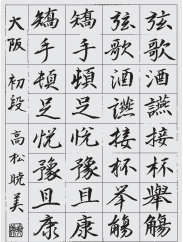 弦歌酒讌接杯舉觴
弦歌酒讌接杯举觴
矯手頓足悦豫且康
矯手頓足悦豫且康
大阪 初段 高松暁美